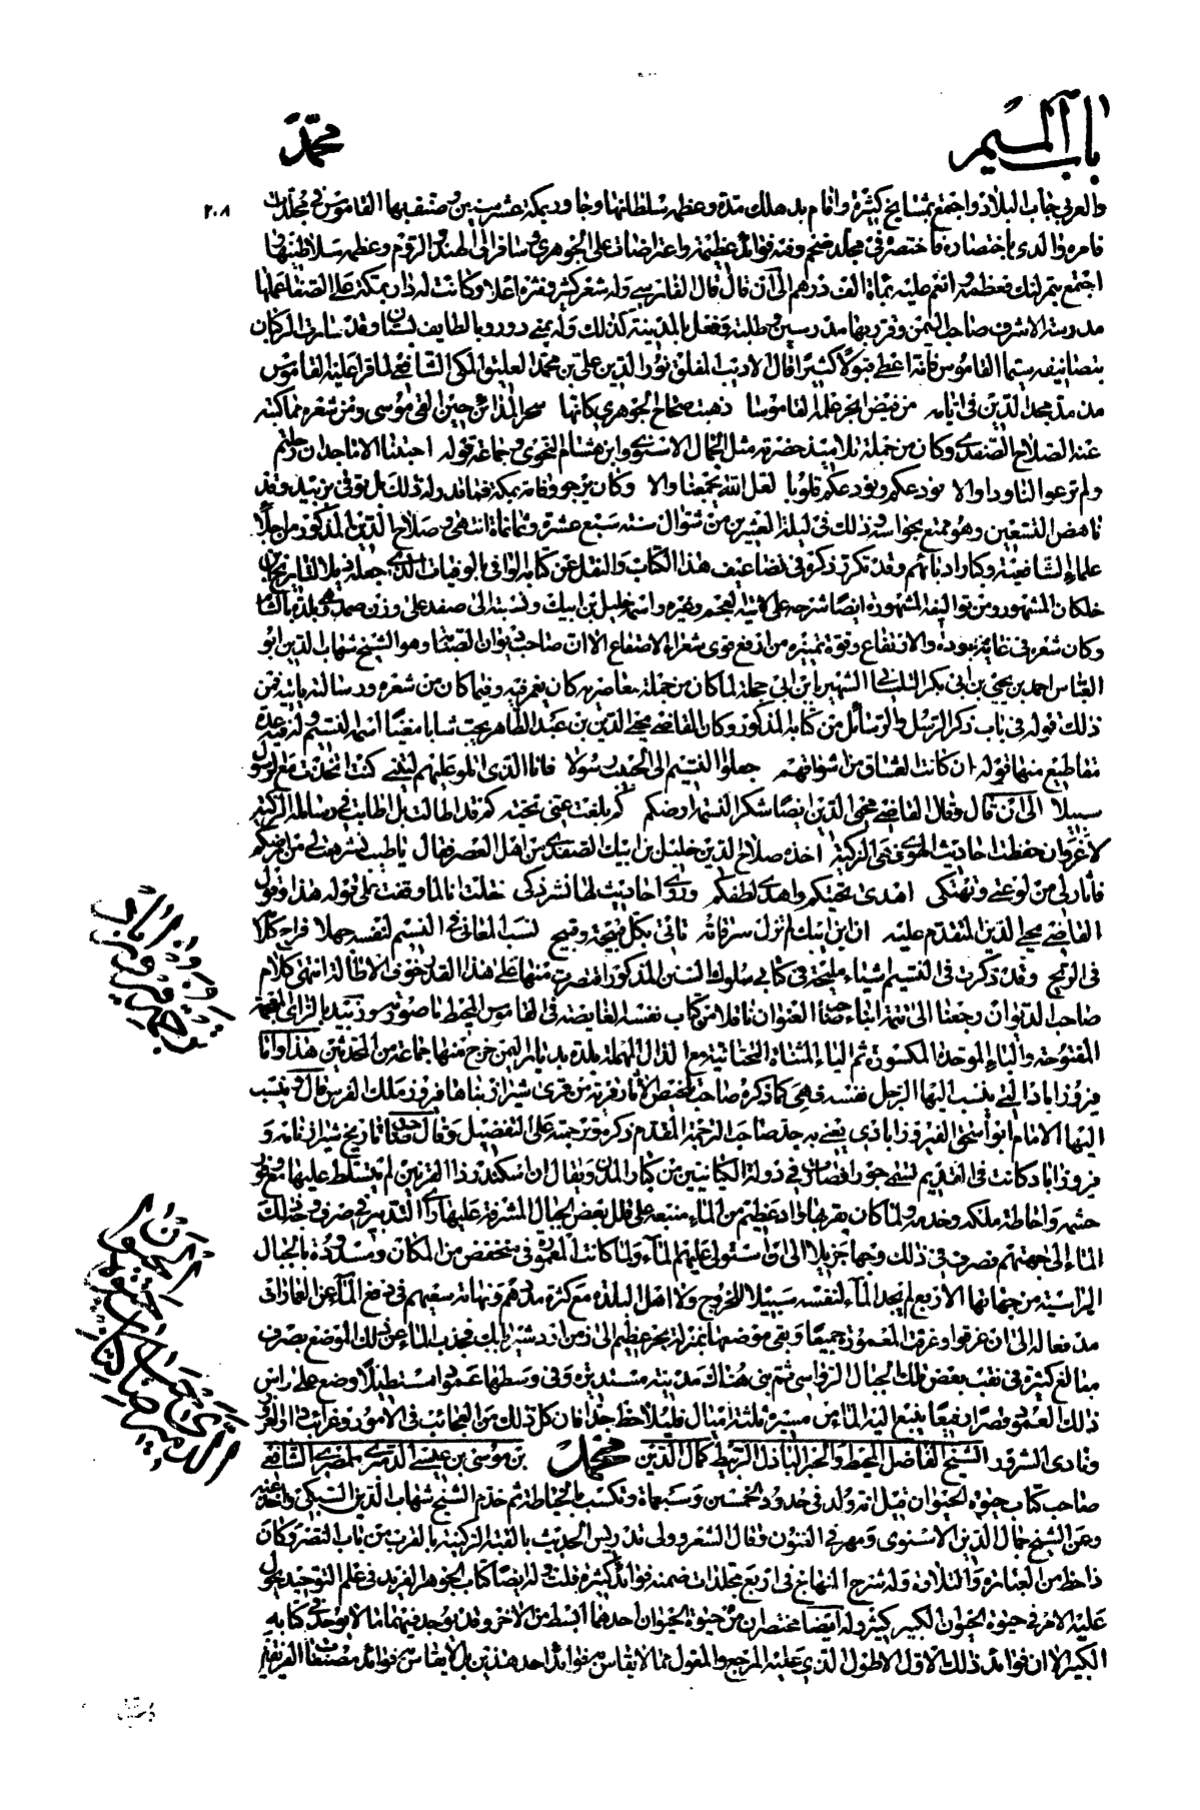 باب الميم
محمد
٢٠٨
والعربي جاب البلاد واجتمع بمشايخ كثيرة واقام بدهلك مدة وعظمه سلطانها وجاور بمكة عشر سنين وصنف بها القاموس في مجلدات
فامره والدي باختصاره فاختصره في مجلد ضخم وفيه فوائد عظيمة واعتراضات على الجوهري وسافر الى الهند والروم وعظمه سلاطينها
اجتمع بتمرلنك فعظمه وانعم عليه بماة الف درهم الى ان قال قال الفاسي وله شعر كثير ونثره اعلا وكانت له دار بمكة على الصفا عملها
مدرسة للاشرف صاحب اليمن وقرر بها مدرسين وطلبة وفعل بالمدينة كذلك وله بمنى دور وبالطايف بستان وقد سارت الركبان
بتصانيفه سيما القاموس فانه اعطي قبولا كثيرا قال الاديب المفلق نور الدين علي بن محمد العليف المكي الشافعي لما قرا عليه القاموس
مذ مد مجد الدين في ايامه من فيض ابحر علمه القاموسا ذهبت صحاح الجوهري كانها سحر المدائن حين القى موسى ومن شعره مما كتبه
عنه الصلاح الصفدي وكان من جملة تلاميذ حضرته مثل الجمال الاسنوي وابن هشام النحوي وجماعة قوله احبتنا الاماجد ان رحلتم
ولم ترعوا لنا ودا والا نودعكم ونودعكم قلوبا لعل الله يجمعنا والا وكان يرجو وفاته بمكة فما قدر له ذلك بل توفي بزبيد وقد
ناهض التسعين وهو ممتع بحواسه وذلك في ليلة العشرين من شوال سنة سبع عشرة وثمانماة انتهى وصلاح الدين المذكور من اجلاء
علماء الشافعية وكبار ادبائهم وقد تكرر ذكره في تضاعيف هذا الكتاب والنقل عن كتابه الوافي بالوفيات الذي جعله ذيلا لتاريخ ابن
خلكان المشهور ومن تواليفه المشهورة ايضا شرحه على لامية العجم وغيره واسمه خليل بن ايبك ونسبته الى صفد على وزن صمد وهي بلدة بالشام
وكان شعره في غاية الجودة والارتفاع وقوة تميزه من ارفع قوى شعراء الاصقاع الا ان صاحب ديوان الصبابة وهو الشيخ شهاب الدين ابو
العباس احمد بن يحيى بن ابي بكر التلمساني الشهير بابن ابي حجلة لما كان من جملة معاصريه كان يعرفه وفيما كان من شعره ورسالة يانيه فمن
ذلك قوله في باب ذكر الرسل والرسائل من كتابه المذكور وكان القاضي محيي الدين بن عبد الظاهر يحب شابا مغنيا اسمه النسيم وله فيه عدة
مقاطيع منها قوله ان كانت العشاق من اشواقهم جعلوا النسيم الى الحبيب رسولا فانا الذي اتلو عليهم ليتني كنت اتخذت مع الرسول
سبيلا الى ان قال وقال القاضي محيي الدين ايضا شكرا لنسمة ارضكم كم بلغت عني تحيه كم قد اطالت بل اطابت في رسالها الزكيه
لا غرو ان حفظت احاديث الهوى فهي الزكيه اخذه صلاح الدين خليل بن ايبك الصفدي من اهل العصر فقال يا طيب نشر هب لي من ارضكم
فاثار لي من لوعتي وتهتكي اهدى تحيتكم واهدى لطفكم وروى احاديث لها نشر ذكي فقلت انا لما وقفت على قوله هذا وقول
القاضي محيي الدين المتقدم عليه ان ابن ايبك لم تزل سرقاته تاتي بكل قبيحة وقبيح نسب المعاني في النسيم لنفسه جهلا فراح كلامه
في الريح وقد ذكرت في النسيم اشياء مليحة في كتابي سلوك السنن المذكور اقتصرت منها على هذا القدر خوف الاطالة انتهى كلام
صاحب الديوان رجعنا الى تتمة ابناء صاحب العنوان ناقلا من كتاب نفسه الفايضة في القاموس المحيط ما صورته وزبيد بالزاي المعجمة
المفتوحة والباء الموحدة المكسورة ثم الياء المثناة التحتانية مع الدال المهملة بلدة بديار اليمن خرج منها جماعة من المحدثين هذا واما
فيروزاباد التي ينسب اليها الرجل نفسه فهي كما ذكره صاحب تلخيص الآثار قرية من قرى شيراز بناها فيروز ملك الفرس قال وينسب
اليها الامام ابو اسحق الفيروزابادي يعني به جد صاحب الترجمة المقدم ذكره وترجمته على التفصيل وقال صاحب تاريخ شيراز نامه و
فيروزاباد كانت في القديم تسمى جور افضل في دولة الكيانيين من كبار المدن ويقال ان اسكندر ذا القرنين لم يتسلط عليها مع وفور
حشمه واحاطة ملكه وخدمه ولما كان بقربها واد عظيم من الماء منبعه على قلل بعض الجبال المشرفة عليها راى التدبير في صرف ذلك
الماء الى جهتهم فصرف في ذلك وجها جزيلا الى ان استولى عليهم الماء ولما كانت المعمورة في منخفض من المكان ومسدودة بالجبال
الراسية من جهاتها الاربع لم يجد الماء لنفسه سبيلا للخروج ولا اهل البلدة مع كثرة مددهم ونهاية سعيهم في دفع الماء عن العمارات
مدفعا له الى ان غرقوا وغرقت المعمورة جميعا وبقي موضعها بمنزلة بحر عظيم الى زمن اردشير بابك فجذب الماء عن تلك الموضع بصرف
مبالغ كثيرة في نقب بعض تلك الجبال الرواسي ثم بنى هناك مدينة مستديرة وفي وسطها عمودا مستطيلا وضع على راس
ذلك العمود قصرا رفيعا يتبع اليه الماء من مسيرة ثلثة اميال فليلاحظ جدا فان كل ذلك من العجائب في الامور وغرائب
ونادى الشرور الشيخ الفاضل المحيط والحبر الباذل الربيط كمال الدين محمد بن موسى بن عيسى الدميري المصري الشافعي
صاحب كتاب حيوة الحيوان قيل انه ولد في حدود الخمسين وسبعماة وتكسب بالخياطة ثم خدم الشيخ شهاب الدين السبكي واخذ عنه
وعن الشيخ جمال الدين الاسنوي ومهر في الفنون وقال الشعر وولى تدريس الحديث بالقبة الركنية بالقرب من باب النصر وكان
ذا حظ من العبادة والتلاوة وله شرح المنهاج في اربع مجلدات ضمنه فوائد كثيرة قلت وله ايضا كتاب الجوهر الفريد في علم التوحيد يحول
عليه الامر في حيوة الحيوان الكبير كثيرا وله ايضا مختصران من حيوة الحيوان احدهما ابسط من الاخر وقد يوجد فيهما ما لا يوجد في كتابه
الكبير الا ان فوائد ذلك الاول الاطول الذي عليه المرجع والمعول مما لا يقاس به فوائد احد هذين بل لا يقاس به فوائد مصنفات الفريقين
وجه فيروزاباد
الدميري صاحب كتاب حيوة الحيوان